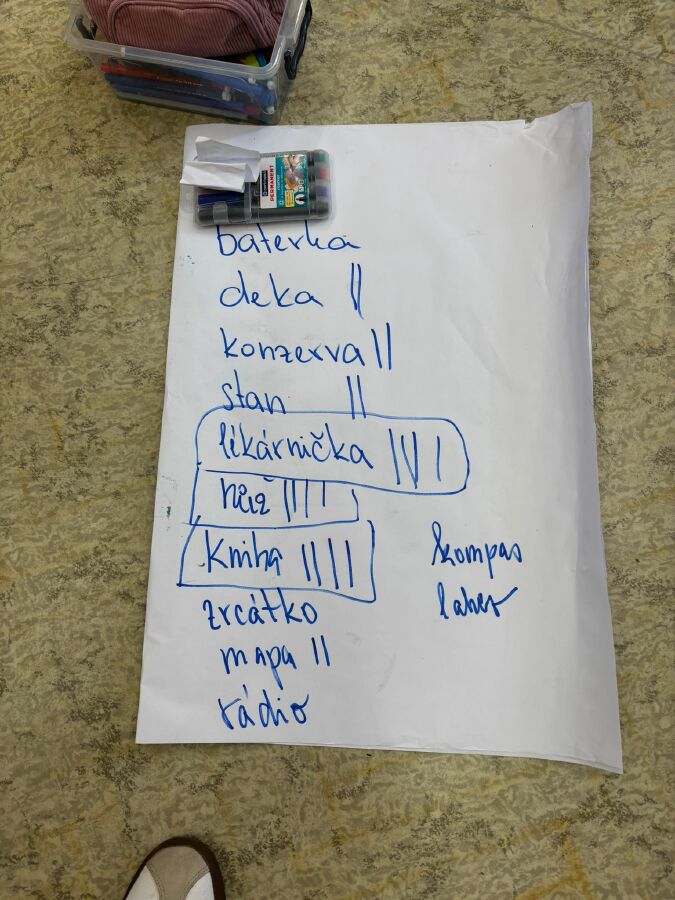 PERMANENT
baterka
deka ||
konzerva ||
stan ||
lékárnička ||||
nůž ||||
kniha ||||
zrcátko
mapa ||
rádio
kompas
lahev